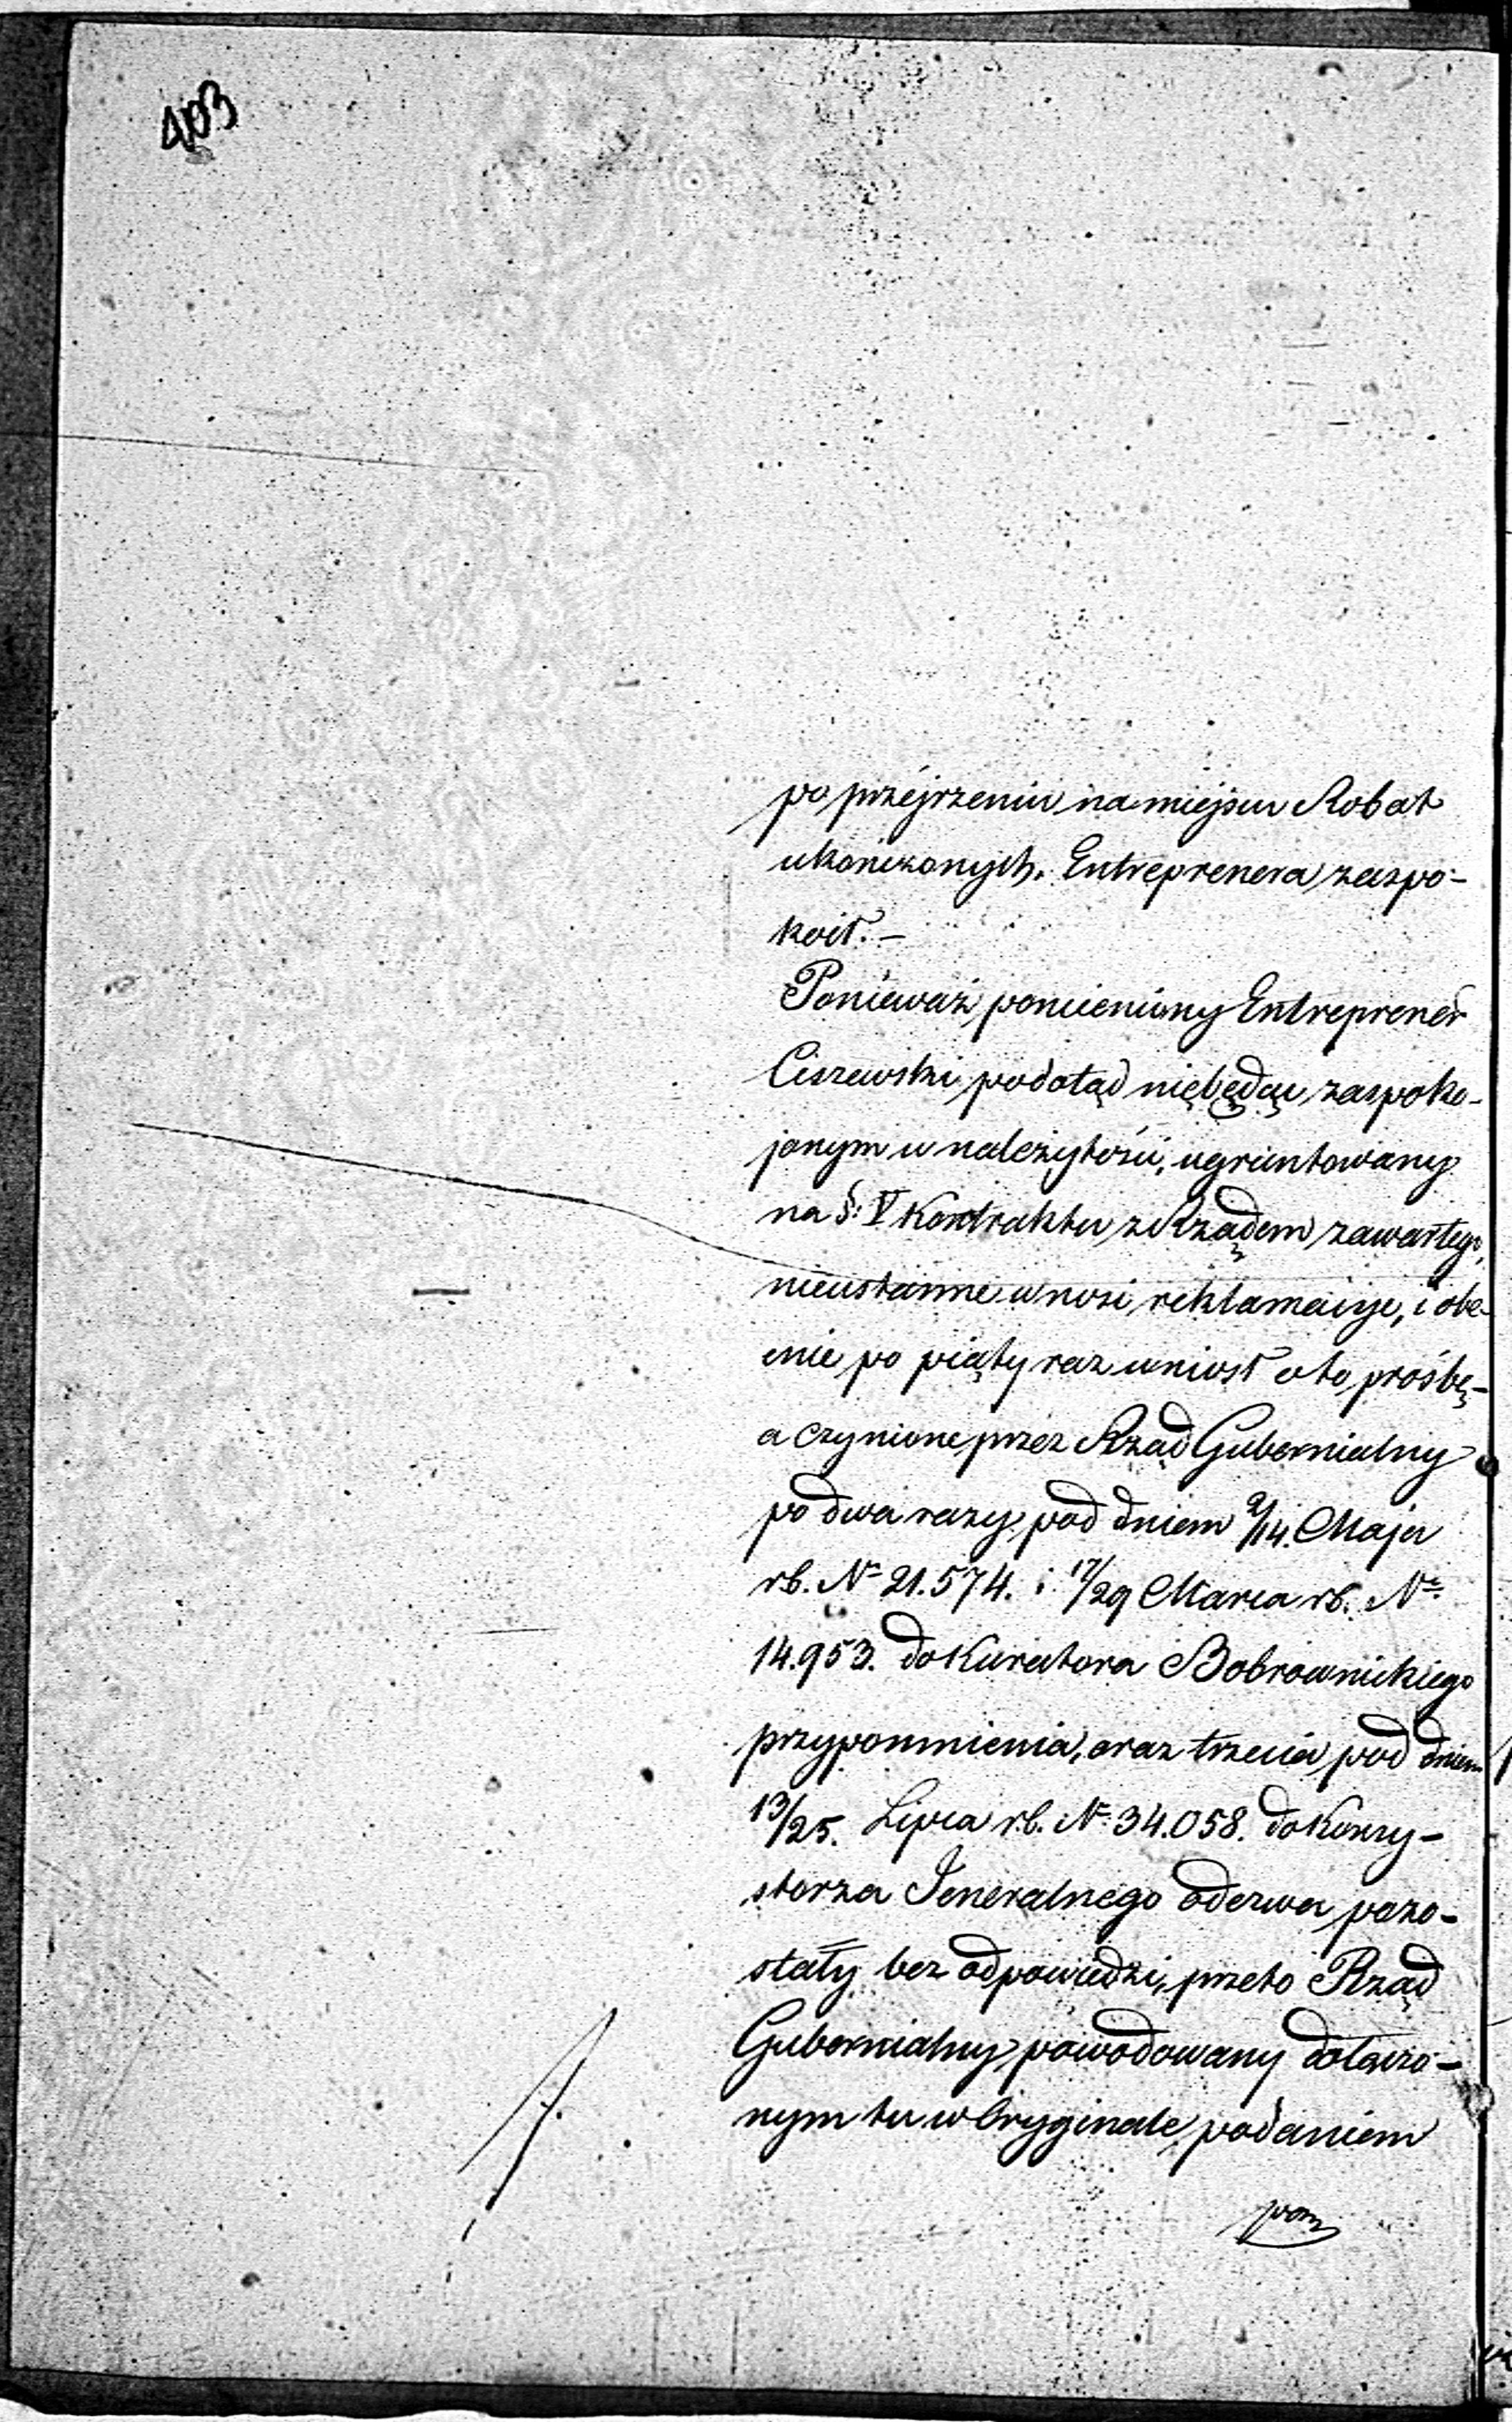 403
po przejrzeniu na miejscu Robat
ukończonych. Entreprenera zaspo-
koił. –
Ponieważ pomieniony Entreprener
Ciszewski podotąd niebędąc zaspoko-
jonym w należytości, ugruntowany
na §: V Kontraktu z Rządem zawartego,
nieustanne wnosi reklamacye, i obe-
cnie po piąty raz wniosł oto prośbę –
a czynione przez Rząd Gubernialny
po dwa razy pod dniem 2/14. Maja
rb. Nr 21.574. i 17/29 Marca rb. Nr
14.953. do Kuratora Bobrownickiego
przypomnienia, oraz trzecia pod dniem
13/25. Lipca rb. Nr 34.058. do Konsy-
storza Jeneralnego odezwa pozo-
stały bez odpowiedzi, przeto Rząd
Gubernialny powodowany dołączo-
nym tu w Oryginale podaniem
pom